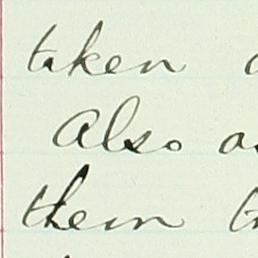 taken
Also
them